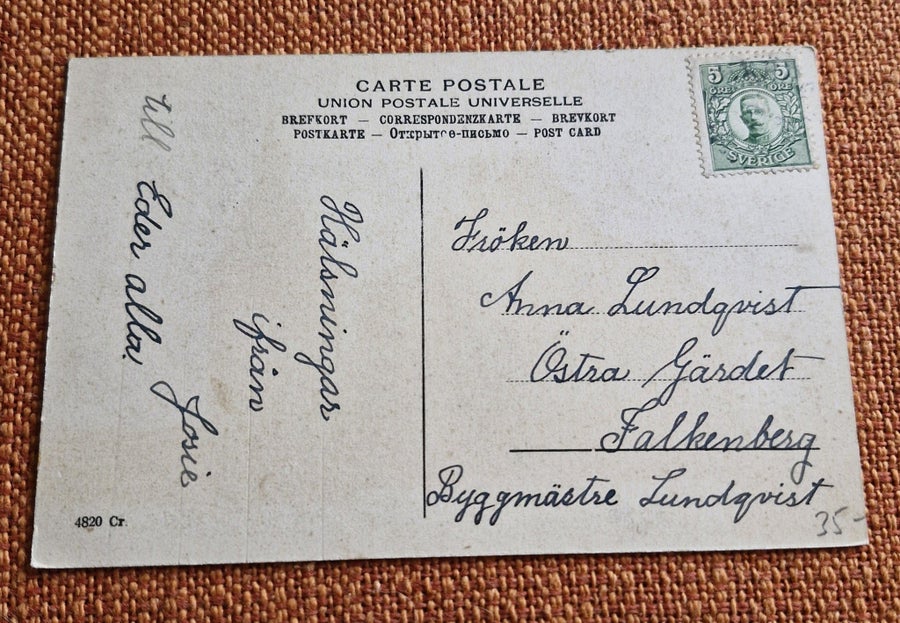 CARTE POSTALE
UNION POSTALE UNIVERSELLE
BREFKORT — CORRESPONDENZKARTE — BREVKORT
POSTKARTE — Открытое-письмо — POST CARD
5 5
ÖRE ÖRE
SVERIGE
Hälsningar
ifrån
Josie
Till Eder alla!
Fröken
Anna Lundqvist
Östra Gärdet
Falkenberg
Byggmästre Lundqvist
35-
4820 Cr.